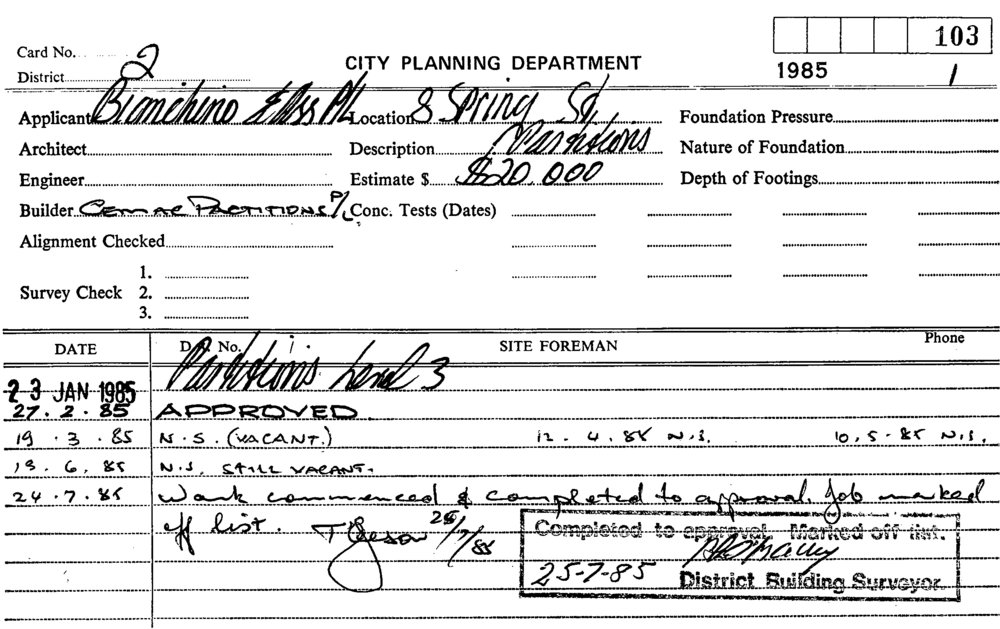 103
Card No. 2
CITY PLANNING DEPARTMENT
1985
1
District
Applicant Bianchino & Ass P/L Location 8 Spring St. Foundation Pressure
Architect Description Partitions Nature of Foundation
Engineer Estimate $ $20.000 Depth of Footings
Builder CEMAC PARTITIONS P/L Conc. Tests (Dates)
Alignment Checked
1.
Survey Check 2.
3.
DATE D. No. SITE FOREMAN Phone
23 JAN 1985 Partitions Level 3
27.2.85 APPROVED
19.3.85 N.S. (VACANT.) 12.4.85 N.S. 10.5.85 N.S.
13.6.85 N.S. STILL VACANT.
24.7.85 Work commenced & completed to approval. Job marked
off list. 25/7/85
Completed to approval. Marked off list.
25-7-85 District Building Surveyor.